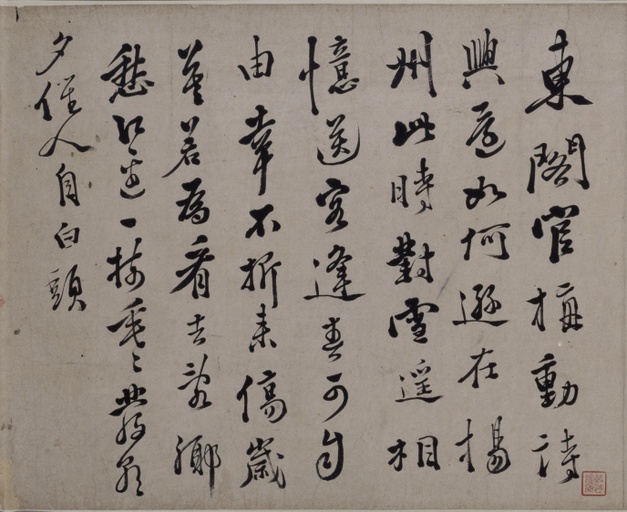 東閣官梅動詩
興還如何遜在揚
州此時對雪遥相
憶送客逢春可自
由幸不折來傷歲
暮若為看去亂鄉
愁江邊一樹垂々發朝
夕催人自白頭